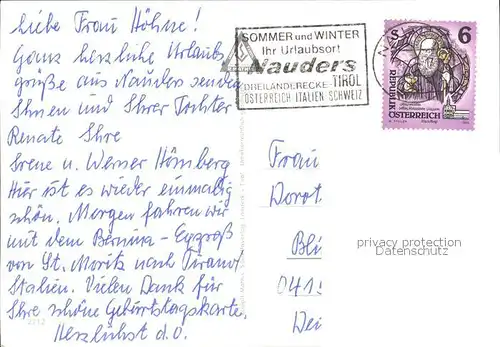 Liebe Frau Höhne!
Ganz herzliche Urlaubs
grüße aus Nauders senden
Ihnen und Ihrer Tochter
Renate Ihre
Irene u. Werner Hömberg
Hier ist es wieder einmalig
schön. Morgen fahren wir
mit dem Bernina-Expreß
von St. Moritz nach Tirano/
Italien. Vielen Dank für
Ihre schöne Geburtstagskarte.
Herzlichst d.O.
SOMMER und WINTER
Ihr Urlaubsort
Nauders
DREILÄNDERECKE-TIROL
ÖSTERREICH ITALIEN SCHWEIZ
S 6
REPUBLIK
ÖSTERREICH
Frau
Dorot
Bli
0415
Dei
privacy protection
Datenschutz